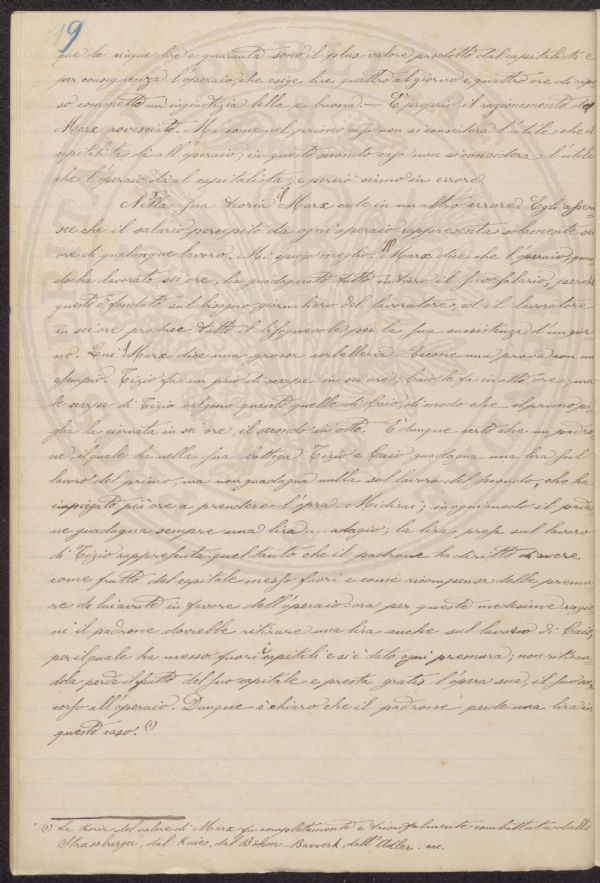 9
que le cinque lire e quaranta sono il plus-valore prodotto dal capitalista e
per conseguenza l'operaio, che esige lire quattro al giorno e quattro ore di ripo-
so commette un'ingiustizia bella e buona. — È proprio il ragionamento del
Marx rovesciato. Ma come nel primo caso non si considera l'utile che il
capitalista dà all'operaio, in questo secondo caso non si considera l'utile
che l'operaio dà al capitalista, e perciò siamo in errore.
Nella sua teoria il Marx cade in un altro errore. Egli asseri-
sce che il salario percepito da ogni operaio rappresenta solamente sei
ore di qualunque lavoro. Mi spiego meglio. Il Marx dice che l'operaio, quan-
do ha lavorato sei ore, ha guadagnato tutto intiero il suo salario, perchè
questo è fondato sul bisogno giornaliero del lavoratore, ed il lavoratore
in sei ore produce tutto il bisognevole per la sua sussistenza d'un gior-
no. Qui il Marx dice una grossa corbelleria. Eccone una prova con un
esempio. Tizio fa un paio di scarpe in sei ore; Caio le fa in otto ore; ma
le scarpe di Tizio valgono quanto quelle di Caio, di modo che il primo pi-
glia la giornata in sei ore, il secondo in otto. È dunque certo che un padro-
ne, il quale ha nella sua bottega Tizio e Caio guadagna una lira sul
lavoro del primo, ma non guadagna nulla sul lavoro del secondo, che ha
impiegato più ore a prendere l'opra. Mi dirai; in ogni modo il padro-
ne guadagna sempre una lira.... adagio; la lira presa sul lavoro
di Tizio rappresenta quel tanto che il padrone ha diritto di avere
come frutto del capitale messo fuori e come ricompensa delle premu-
re da lui avute in favore dell'operaio: ora per queste medesime ragio-
ni il padrone dovrebbe ritirare una lira anche sul lavoro di Caio,
per il quale ha messo fuori i capitali e si è dato ogni premura; non ritiran-
dola perde il frutto del suo capitale e presta gratis l'opera sua, il suo soc-
corso all'operaio. Dunque è chiaro che il padrone perde una lira in
questo caso. (1)
(1) La teoria del valore di Marx fu completamente e trionfalmente combattuta dallo
Strassburger, dal Knies, dal Böhm-Bawerk, dall'Adler. ecc.